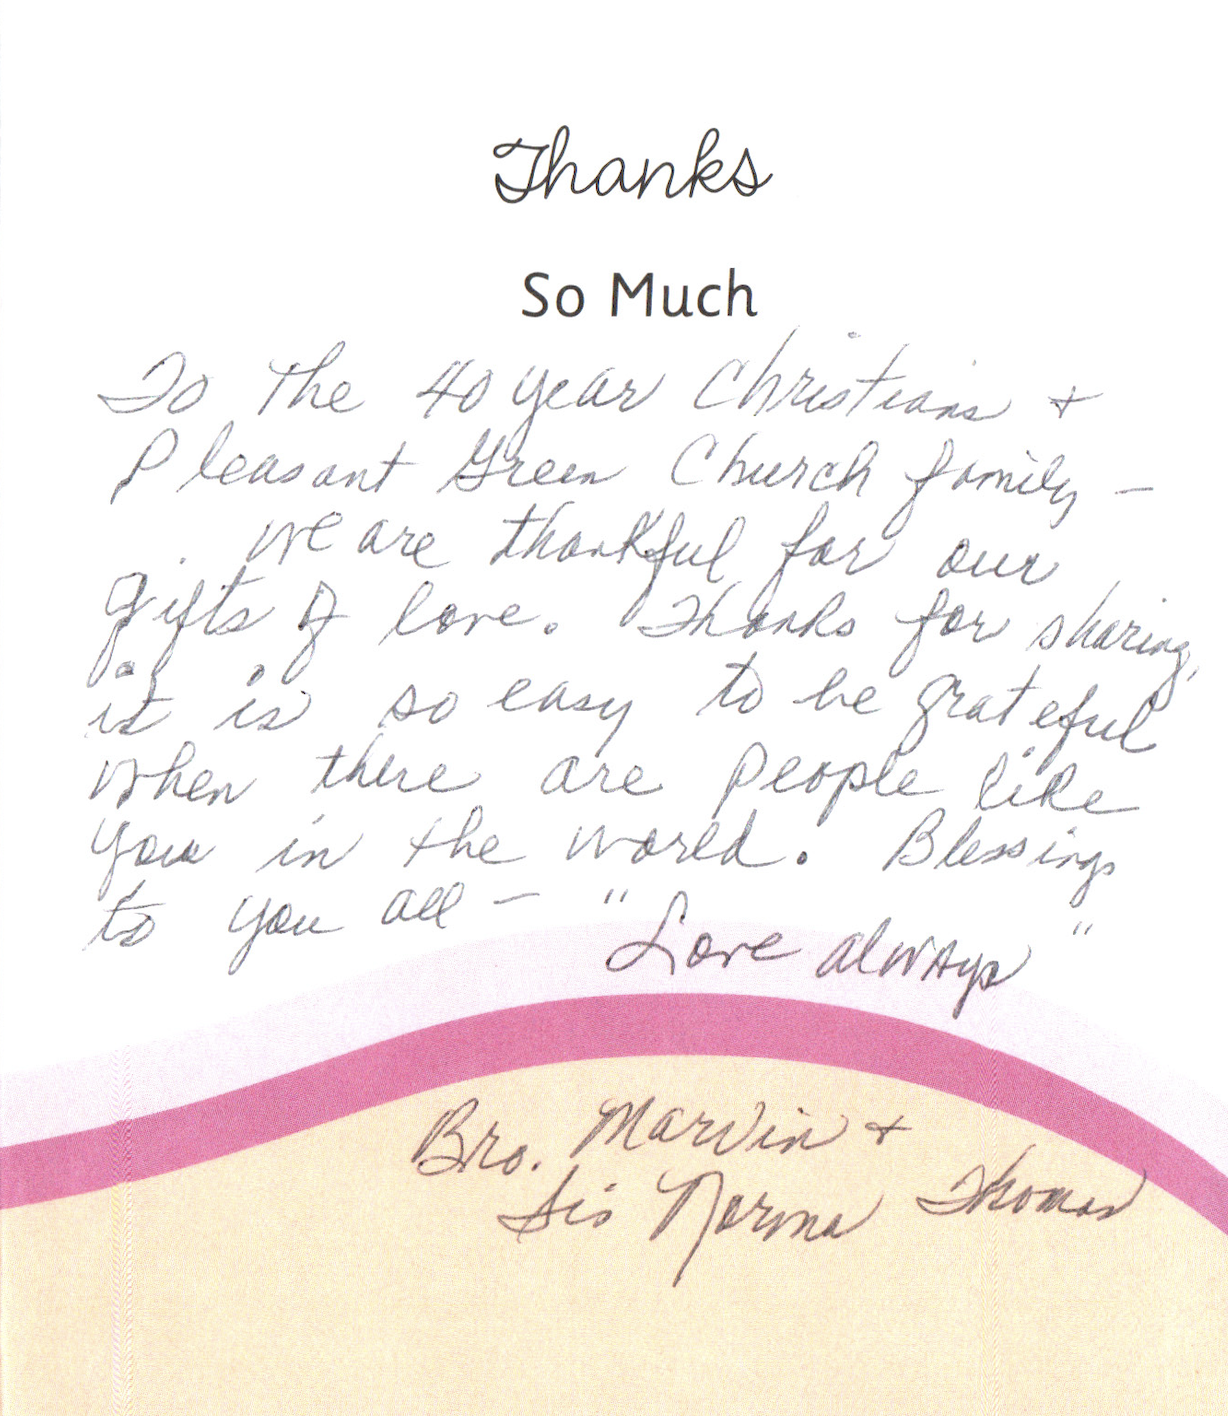 Thanks
So Much
To The 40 year Christians +
Pleasant Green Church family -
we are thankful for our
gifts of love. Thanks for sharing,
it is so easy to be grateful
when there are people like
you in the world. Blessings
to you all - "Love always"
Bro. Marvin +
Sis Norma Thomas